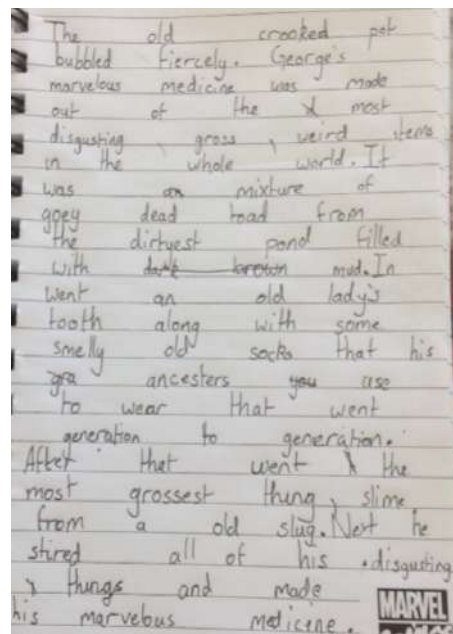 The old crooked pot
bubbled fiercely. George's
marvelous medicine was made
out of the most
disgusting, gross, weird items
in the whole world. It
was an mixture of
goey dead toad from
the dirtyest pond filled
with dark brown mud. In
went an old lady's
tooth along with some
smelly old socks that his
gra ancesters you use
to wear that went
generation to generation.
After that went the
most grossest thing, slime
from a old slug. Next he
stired all of his disgusting
things and made
his marvelous medicene.
MARVEL